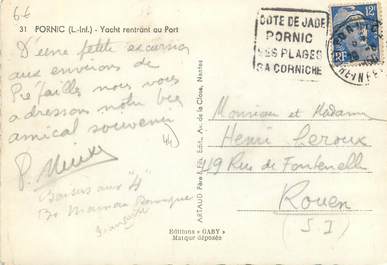 6-6
31 PORNIC (L.-Inf.) - Yacht rentrant au Port
D'une petite excursion
aux environs de
nous vous
adressons notre
amical souvenir
44
Baisers aux "4"
COTE DE JADE
PORNIC
SES PLAGES
SA CORNICHE
12F
RF
ARTAUD Père & Fils Edit., Av. de la Close, Nantes
Monsieur et Madame
Henri Leroux
19 Rue de Fontenelle
Rouen
(S I)
Editions "GABY"
Marque déposée